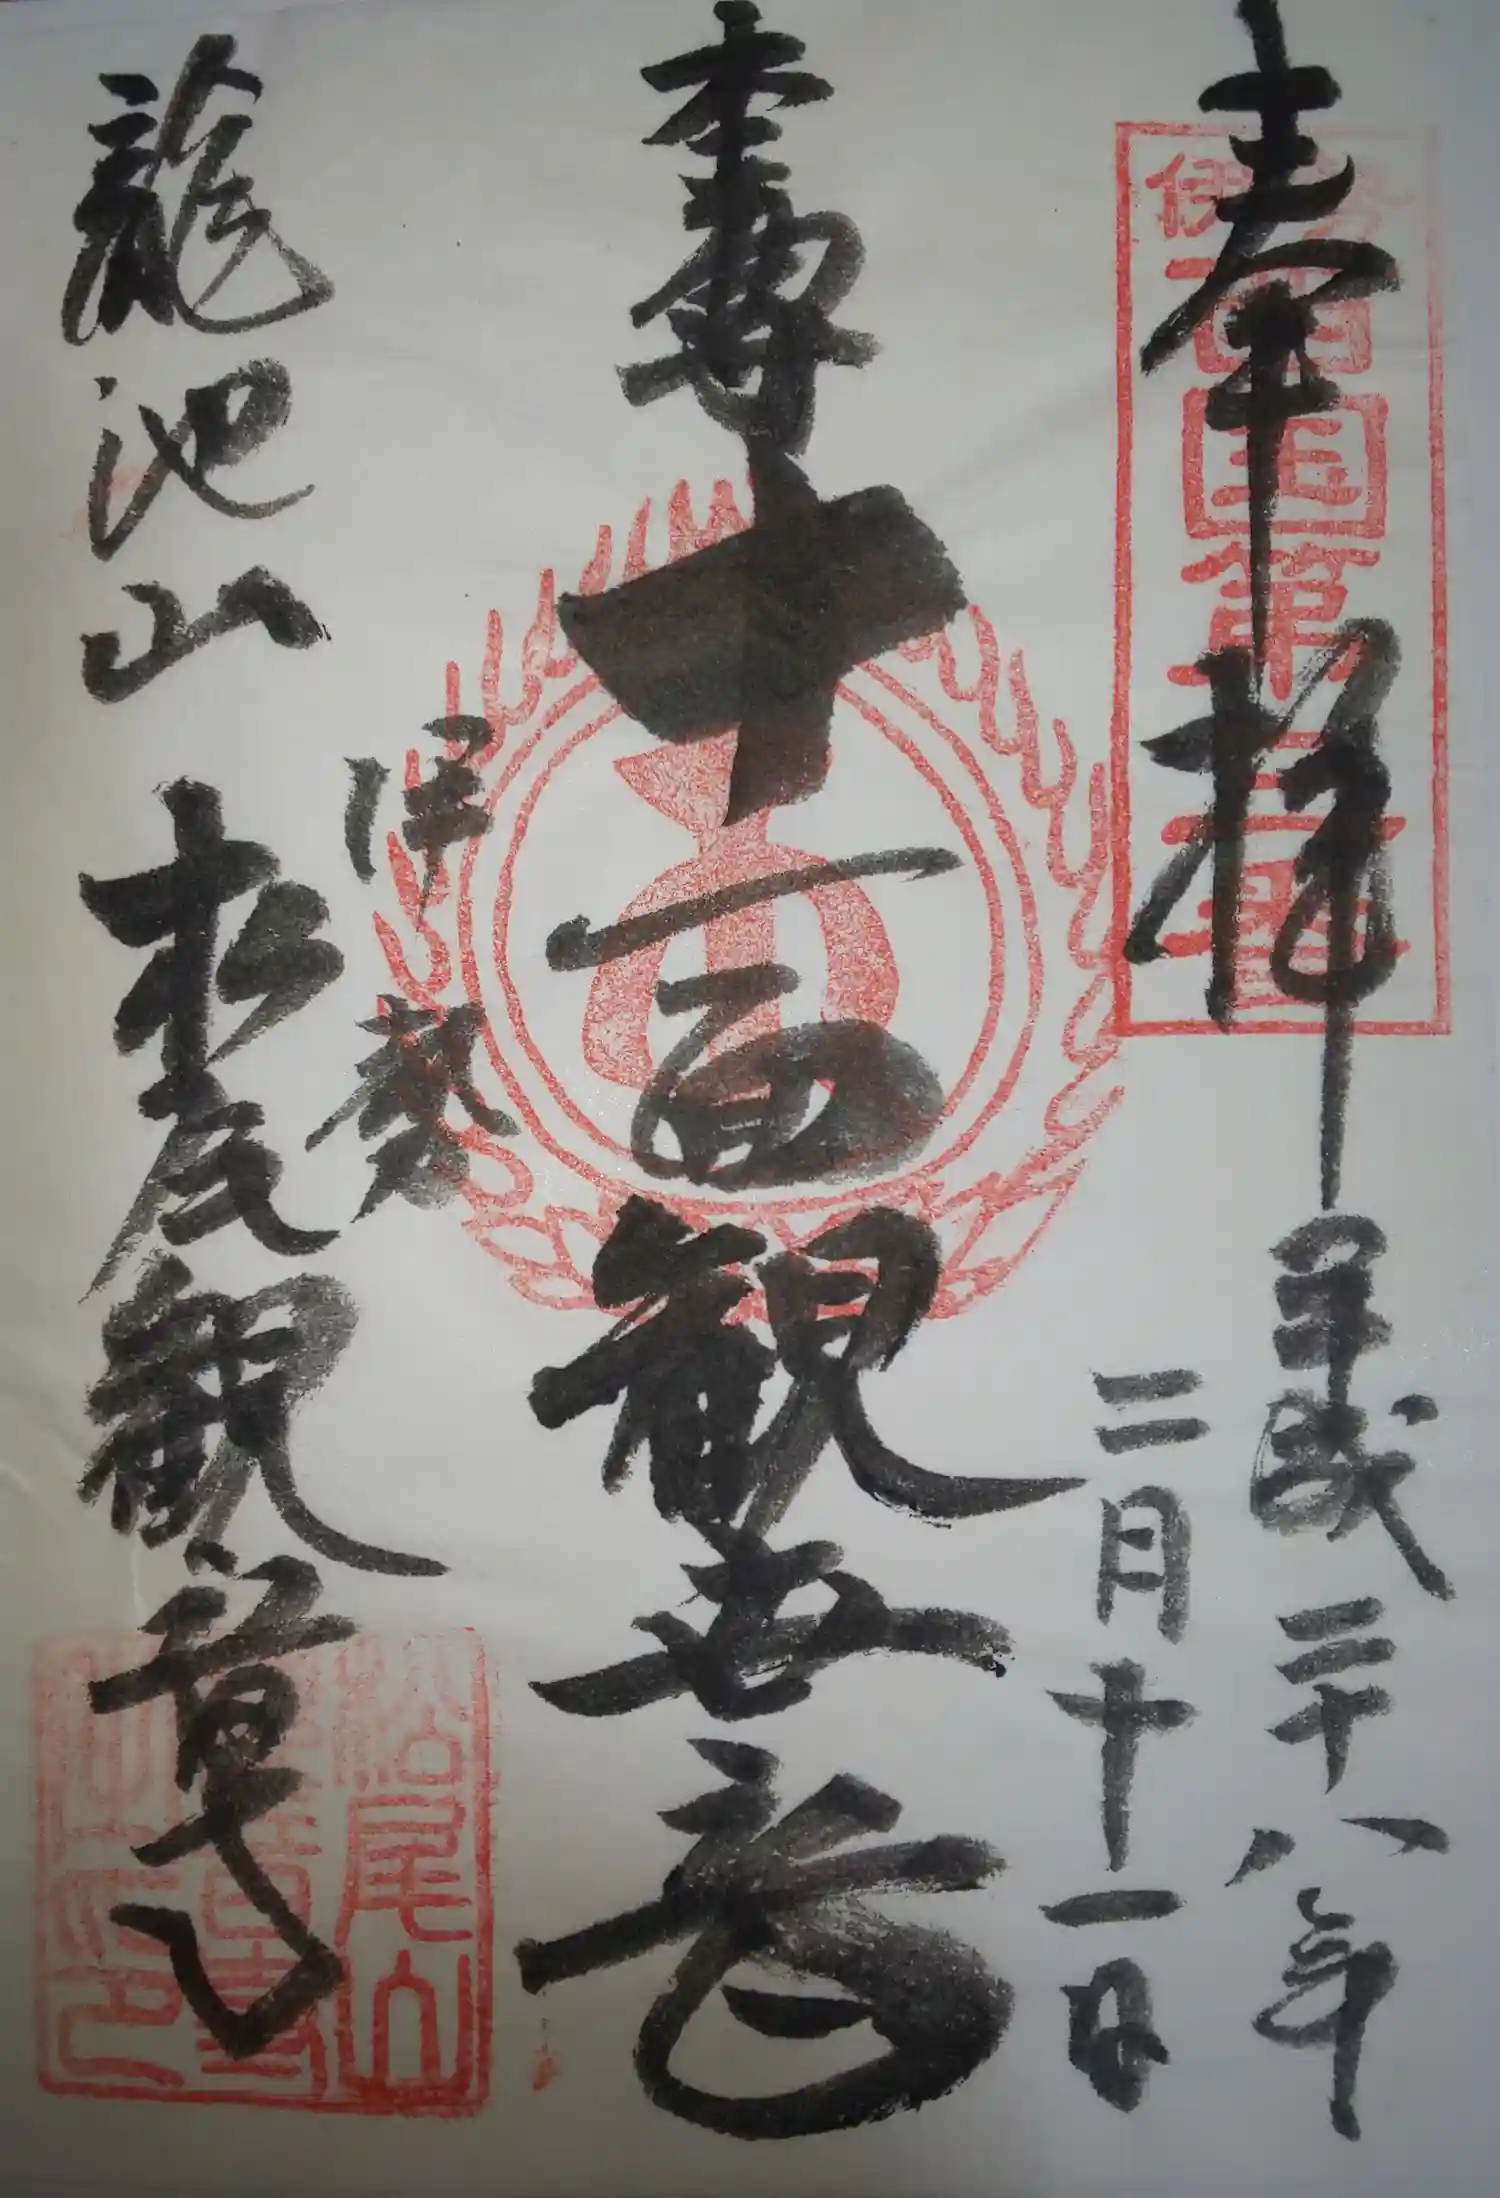 奉拝
伊勢西国第三番
平成二十八年
二月十一日
本尊十一面観世音
伊勢
龍池山松尾観音寺
松尾山